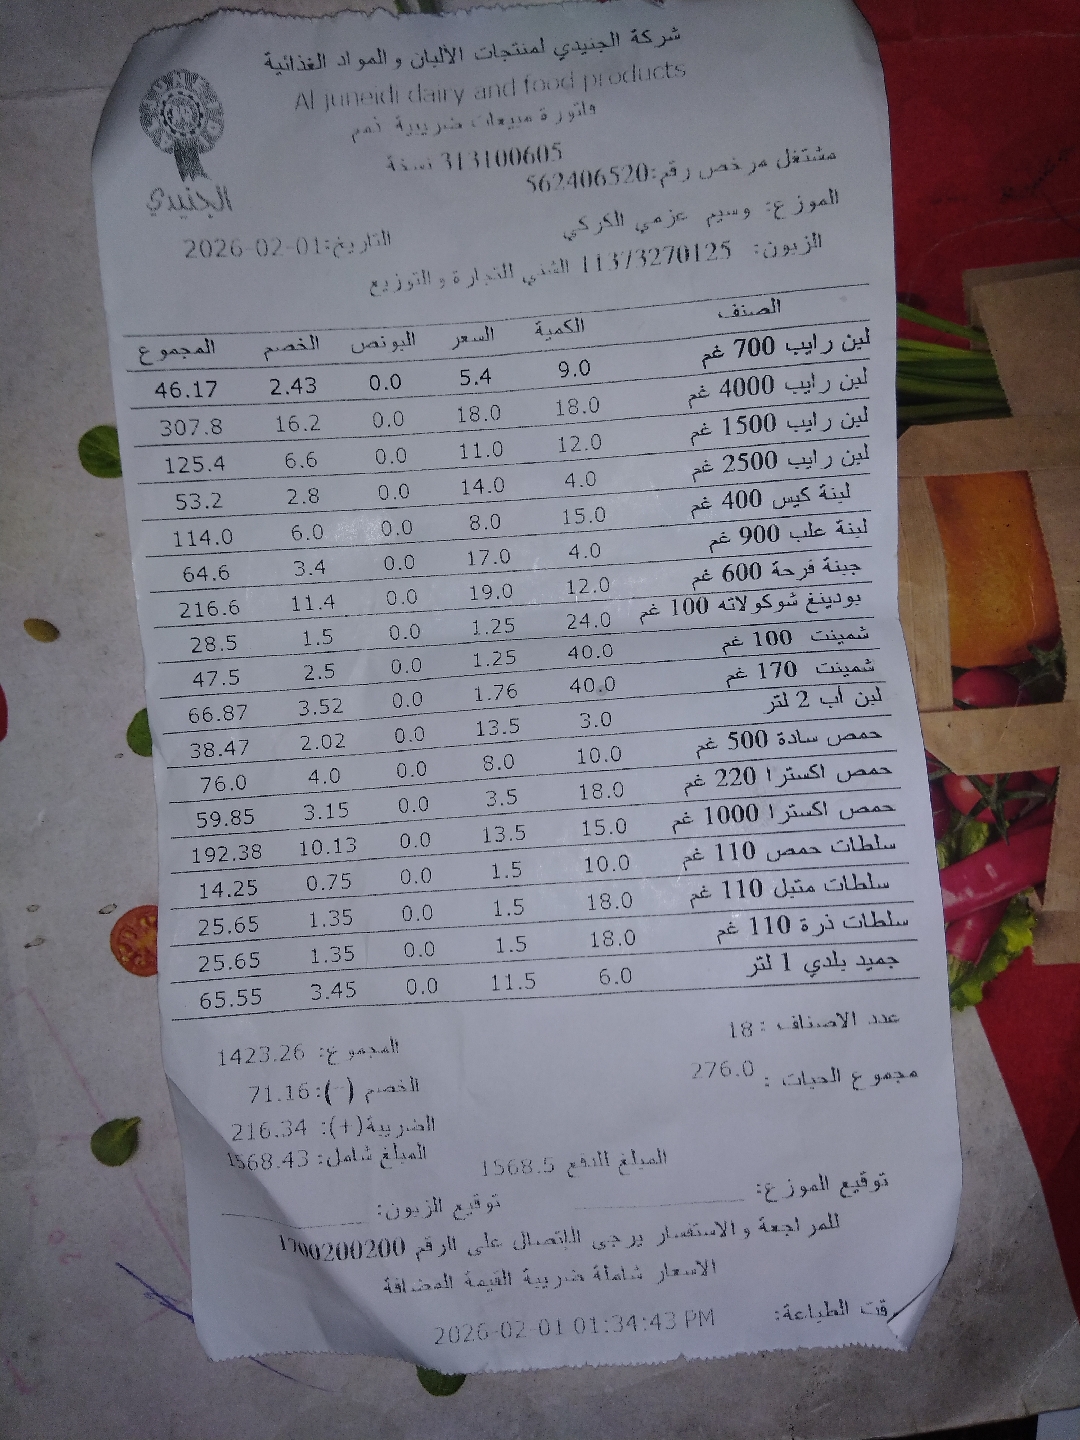 شركة الجنيدي لمنتجات الألبان و المواد الغذائية
Al juneidi dairy and food products
الجنيدي
فاتورة مبيعات ضريبية ذمم
313100605 نسخة
مشتغل مرخص رقم:562406520
الموزع: وسيم عزمي الكركي
التاريخ:2026-02-01
الزبون: 11373270125 الشني التجارة و التوزيع
الصنف الكمية السعر البونص الخصم المجموع
لبن رايب 700 غم 9.0 5.4 0.0 2.43 46.17
لبن رايب 4000 غم 18.0 18.0 0.0 16.2 307.8
لبن رايب 1500 غم 12.0 11.0 0.0 6.6 125.4
لبن رايب 2500 غم 4.0 14.0 0.0 2.8 53.2
لبنة كيس 400 غم 15.0 8.0 0.0 6.0 114.0
لبنة علب 900 غم 4.0 17.0 0.0 3.4 64.6
جبنة فرحة 600 غم 12.0 19.0 0.0 11.4 216.6
بودينغ شوكولاته 100 غم 24.0 1.25 0.0 1.5 28.5
شمينت 100 غم 40.0 1.25 0.0 2.5 47.5
شمينت 170 غم 40.0 1.76 0.0 3.52 66.87
لبن اب 2 لتر 3.0 13.5 0.0 2.02 38.47
حمص سادة 500 غم 10.0 8.0 0.0 4.0 76.0
حمص اكسترا 220 غم 18.0 3.5 0.0 3.15 59.85
حمص اكسترا 1000 غم 15.0 13.5 0.0 10.13 192.38
سلطات حمص 110 غم 10.0 1.5 0.0 0.75 14.25
سلطات متبل 110 غم 18.0 1.5 0.0 1.35 25.65
سلطات ذرة 110 غم 18.0 1.5 0.0 1.35 25.65
جميد بلدي 1 لتر 6.0 11.5 0.0 3.45 65.55
عدد الاصناف : 18
المجموع: 1423.26
مجموع الحبات : 276.0
الخصم (-): 71.16
الضريبة(+): 216.34
المبلغ شامل: 1568.43
المبلغ للدفع 1568.5
توقيع الموزع:
توقيع الزبون:
للمراجعة والاستفسار يرجى الاتصال على الرقم 1700200200
الاسعار شاملة ضريبة القيمة المضافة
وقت الطباعة: 2026-02-01 01:34:43 PM